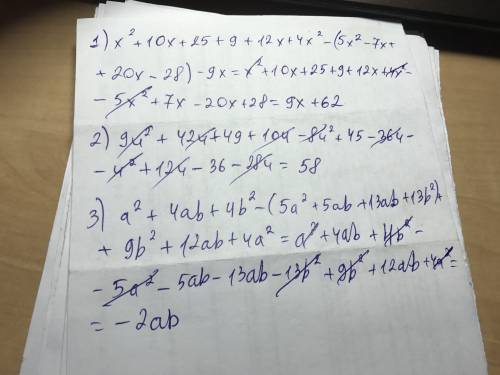 1) x² + 10x + 25 + 9 + 12x + 4x² - (5x² - 7x +
+ 20x - 28) - 9x = x² + 10x + 25 + 9 + 12x + 4x² -
- 5x² + 7x - 20x + 28 = 9x + 62
2) 9y² + 42y + 49 + 10y - 8y² + 45 - 36y -
- y² + 12y - 36 - 28y = 58
3) a² + 4ab + 4b² - (5a² + 5ab + 13ab + 13b²) +
+ 9b² + 12ab + 4a² = a² + 4ab + 4b² -
- 5a² - 5ab - 13ab - 13b² + 9b² + 12ab + 4a² =
= - 2ab